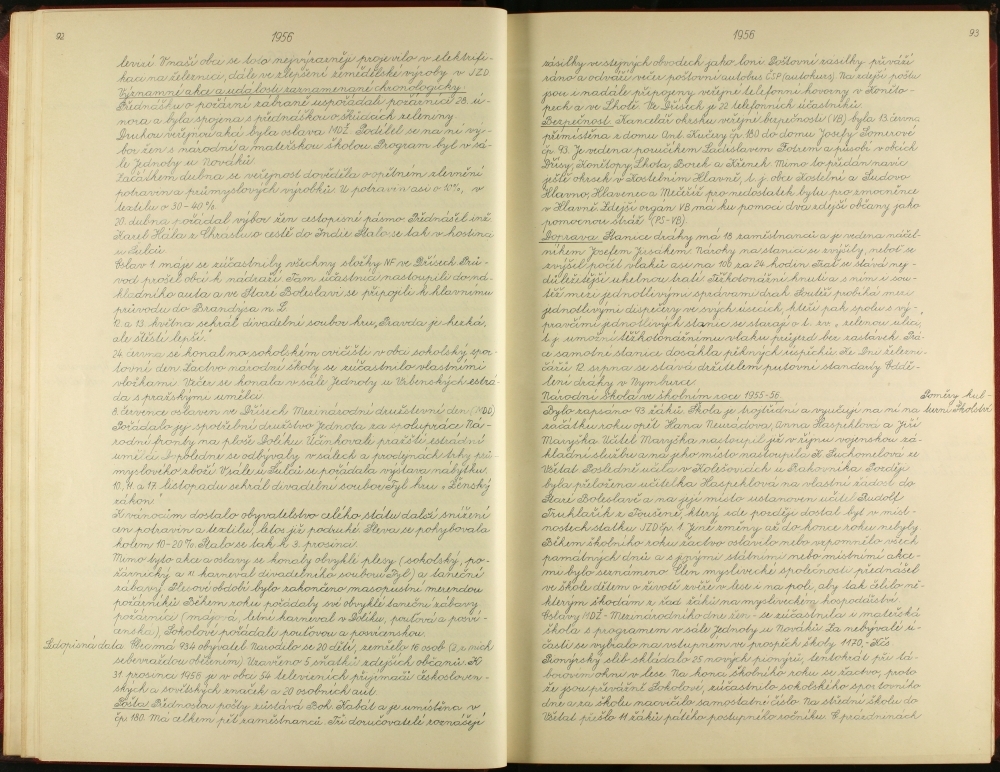 92
1956
levizí. V naší obci se toto nejvýrazněji projevilo v elektrifi-
kaci na železnici, dále ve zlepšení zemědělské výroby v JZD.
Významné akce a události zaznamenané chronologicky.
Přednášku o požární zábraně uspořádali požárníci 28. ú-
nora a byla spojena s přednáškou o škůdcích zeleniny.
Druhou veřejnou akcí byla oslava MDŽ. Podílel se na ní vý-
bor žen s národní a mateřskou školou. Program byl v sá-
le Jednoty u Nováků.
Začátkem dubna se veřejnost dověděla o opětném zlevnění
potravin a průmyslových výrobků. U potravin asi o 10%, v
textilu o 30-40%.
20. dubna pořádal výbor žen cestopisné pásmo. Přednášel inž.
Karel Hála z Chrástu o cestě do Indie. Stalo se tak v hostinci
u Šulců.
Oslav 1. máje se zúčastnily všechny složky NF ve Dřísech. Prů-
vod prošel obcí k nádraží. Tam účastníci nastoupili do ná-
kladního auta a ve Staré Boleslavi se připojili k hlavnímu
průvodu do Brandýsa n. L.
12. a 13. května sehrál divadelní soubor hru „Pravda je hezká,
ale štěstí lepší.
24. června se konal na sokolském cvičišti v obci sokolský spor-
tovní den. Žactvo národní školy se zúčastnilo vlastními
vložkami. Večer se konala v sále Jednoty u Urbenských estrá-
da s pražskými umělci.
8. července oslaven ve Dřísech Mezinárodní družstevní den (MDD).
Pořádalo jej spotřební družstvo Jednota za spolupráce Ná-
rodní fronty na ploše Doliku. Účinkovali pražští estrádní
umělci. Dopoledne se odbývaly v sálech a prodejnách trhy prů-
myslového zboží. V sále u Šulců se pořádala výstava nábytku.
10., 11. a 17. listopadu sehrál divadelní soubor Tyl hru „Ženský
zákon."
K vánocům dostalo obyvatelstvo celého státu další snížení
cen potravin a textilu, letos již podruhé. Sleva se pohybovala
kolem 10-20%. Stalo se tak k 3. prosinci.
Mimo tyto akce a oslavy se konaly obvyklé plesy (sokolský, po-
žárnický a karneval divadelního souboru Tyl) a taneční
zábavy. Plesové období bylo zakončeno masopustní merendou
požárníků. Během roku pořádaly své obvyklé taneční zábavy
požárníci (májová, letní karneval v Doliku, pouťová a posví-
censká), Sokolové pořádali pouťovou a posvícenskou.
Letopisná data. Obec má 934 obyvatel. Narodilo se 20 dětí, zemřelo 16 osob (2 z nich
sebevraždou oběšením). Uzavřeno 5 sňatků zdejších občanů. K
31. prosinci 1956 je v obci 54 televizních přijímačů českosloven-
ských a sovětských značek a 20 osobních aut.
Pošta. Přednostou pošty zůstává Boh. Kabát a je umístěna v
čp. 180. Má celkem pět zaměstnanců. Tři doručovatelé roznášejí
1956
93
zásilky ve stejných obvodech jako loni. Poštovní zásilky přiváží
ráno a odváží večer poštovní autobus ČSP (autokurs). Na zdejší poštu
jsou i nadále připojeny veřejné telefonní hovorny v Koněto-
pech a ve Lhotě. Ve Dřísech je 22 telefonních účastníků.
Bezpečnost. Kancelář okrsku veřejné bezpečnosti (VB) byla 13. června
přemístěna z domu Ant. Kučery čp. 180 do domu Josefy Šomerové
čp. 93. Je vedena poručíkem Ladislavem Fotrem a působí v obcích
Dřísy, Konětopy, Lhota, Borek a Křenek. Mimo to přidán navíc
ještě okrsek v Kostelním Hlavně, t. j. obce Kostelní a Sudovo
Hlavno, Hlavenec a Mečeříž pro nedostatek bytu pro zmocněnce
v Hlavně. Zdejší orgán VB má ku pomoci dva zdejší občany jako
pomocnou stráž (PS-VB).
Doprava. Stanice dráhy má 18 zaměstnanců a je vedena náčel-
níkem Josefem Jusákem. Nároky na stanici se zvýšily, neboť se
zvýšil počet vlaků asi na 100 za 24 hodin. Trať se stává nej-
důležitější uhelnou tratí. Těžkotonážní hnutí a s ním i sou-
těž mezi jednotlivými správami drah. Soutěž probíhá mezi
jednotlivými dispečery ve svých úsecích, kteří pak spolu s vý-
pravčími jednotlivých stanic se starají o t. zv. „zelenou ulici,
t. j. umožní těžkotonážnímu vlaku průjezd bez zastávek. Prá-
ce samotné stanice dosáhla pěkných úspěchů. Ke Dni železni-
čářů 12. srpna se stává držitelem putovní standarty Oddě-
lení dráhy v Nymburce.
Národní škola ve školním roce 1955-56.
Poměry kul-
turní. Školství
Bylo zapsáno 93 žáků. Škola je trojtřídní a vyučují na ní na
začátku roku opět Hana Neuradová, Anna Haspeklová a Jiří
Maryška. Učitel Maryška nastoupil již v říjnu vojenskou zá-
kladní službu a na jeho místo nastoupila K. Suchomelová ze
Všetat. Posledně učila v Kolešovicích u Rakovníka. Později
byla přeložena učitelka Haspeklová na vlastní žádost do
Staré Boleslavě a na její místo ustanoven učitel Rudolf
Truhlařík z Toušeně, který zde později dostal byt v míst-
nostech statku JZD čp. 1. Jiné změny až do konce roku nebyly.
Během školního roku žactvo oslavilo nebo vzpomnělo všech
památných dnů a s jinými státními nebo místními akce-
mi bylo seznámeno. Člen myslivecké společnosti přednášel
ve škole dětem o životě zvěře v lese i na poli, aby tak čelilo ně-
kterým škodám z řad žáků na mysliveckém hospodářství.
Oslavy MDŽ - Mezinárodního dne žen - se zúčastnila i mateřská
škola s programem v sále Jednoty u Nováků. Za nebývalé ú-
časti se vybralo na vstupném ve prospěch školy 1170,- Kčs.
Pionýrský slib skládalo 25 nových pionýrů, tentokrát při tá-
borovém ohni v lese. Na konci školního roku se žactvo, proto
že jsou převážně Sokolové, zúčastnilo sokolského sportovního
dne a za školu nacvičilo samostatné číslo. Na střední školu do
Všetat přešlo 11 žáků pátého postupného ročníku. O prázdninách